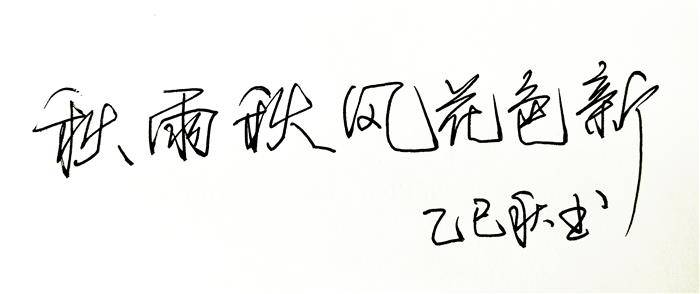 秋雨秋风花色新
乙巳秋书